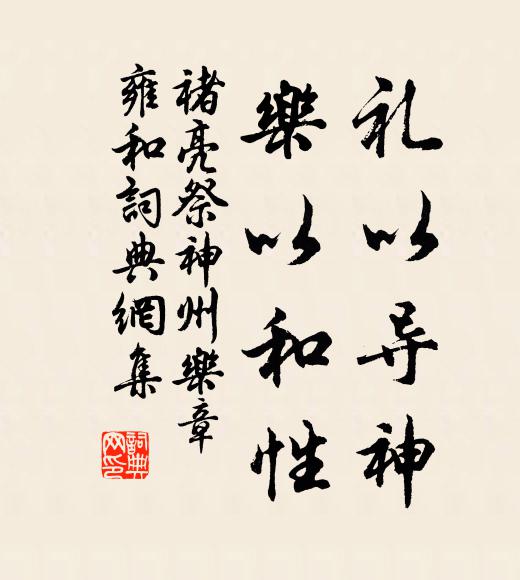 礼以导神
樂以和性
褚亮祭神州樂章
雍和詞典網集
詞典网印